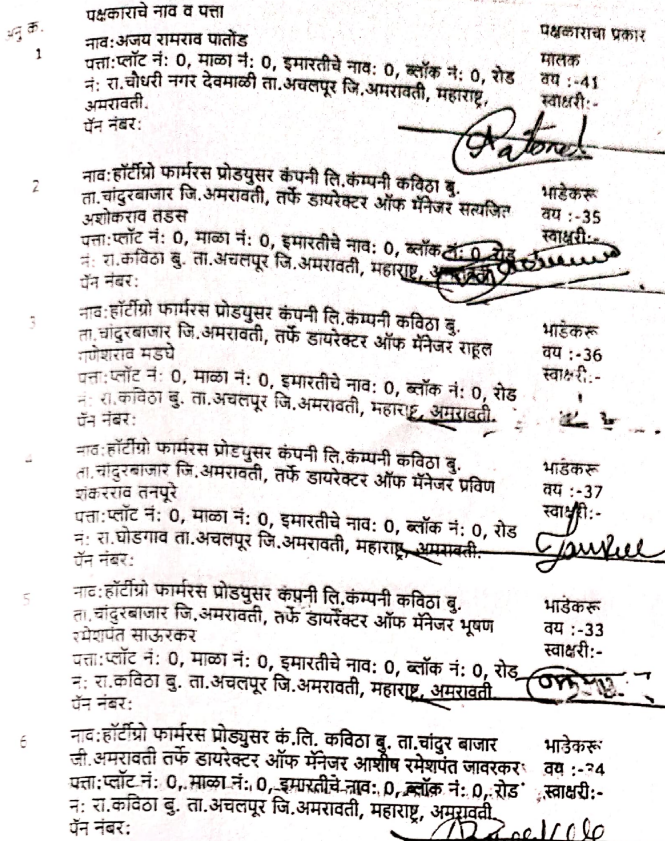 अनु क्र.
पक्षकाराचे नाव व पत्ता
पक्षकाराचा प्रकार
1
नाव:अजय रामराव पातोंड
पत्ता:प्लॉट नं: 0, माळा नं: 0, इमारतीचे नाव: 0, ब्लॉक नं: 0, रोड
नं: रा.चौधरी नगर देवमाळी ता.अचलपूर जि.अमरावती, महाराष्ट्र,
अमरावती.
पॅन नंबर:
मालक
वय :-41
स्वाक्षरी:-
2
नाव:हॉर्टीग्रो फार्मरस प्रोडयुसर कंपनी लि.कंम्पनी कविठा बु.
ता.चांदुरबाजार जि.अमरावती, तर्फे डायरेक्टर ऑफ मॅनेजर सत्यजित
अशोकराव तडस
पत्ता:प्लॉट नं: 0, माळा नं: 0, इमारतीचे नाव: 0, ब्लॉक नं: 0, रोड
नं: रा.कविठा बु. ता.अचलपूर जि.अमरावती, महाराष्ट्र, अमरावती
पॅन नंबर:
भाडेकरू
वय :-35
स्वाक्षरी:-
3
नाव:हॉर्टीग्रो फार्मरस प्रोडयुसर कंपनी लि.कंम्पनी कविठा बु.
ता.चांदुरबाजार जि.अमरावती, तर्फे डायरेक्टर ऑफ मॅनेजर राहूल
गणेशराव मडघे
पत्ता:प्लॉट नं: 0, माळा नं: 0, इमारतीचे नाव: 0, ब्लॉक नं: 0, रोड
नं: रा.कविठा बु. ता.अचलपूर जि.अमरावती, महाराष्ट्र, अमरावती.
पॅन नंबर:
भाडेकरू
वय :-36
स्वाक्षरी:-
4
नाव:हॉर्टीग्रो फार्मरस प्रोडयुसर कंपनी लि.कंम्पनी कविठा बु.
ता.चांदुरबाजार जि.अमरावती, तर्फे डायरेक्टर ऑफ मॅनेजर प्रविण
शंकरराव तनपूरे
पत्ता:प्लॉट नं: 0, माळा नं: 0, इमारतीचे नाव: 0, ब्लॉक नं: 0, रोड
नं: रा.घोडगाव ता.अचलपूर जि.अमरावती, महाराष्ट्र, अमरावती.
पॅन नंबर:
भाडेकरू
वय :-37
स्वाक्षरी:-
5
नाव:हॉर्टीग्रो फार्मरस प्रोडयुसर कंपनी लि.कंम्पनी कविठा बु.
ता.चांदुरबाजार जि.अमरावती, तर्फे डायरेक्टर ऑफ मॅनेजर भूषण
रमेशपंत साऊरकर
पत्ता:प्लॉट नं: 0, माळा नं: 0, इमारतीचे नाव: 0, ब्लॉक नं: 0, रोड
नं: रा.कविठा बु. ता.अचलपूर जि.अमरावती, महाराष्ट्र, अमरावती
पॅन नंबर:
भाडेकरू
वय :-33
स्वाक्षरी:-
6
नाव:हॉर्टीग्रो फार्मरस प्रोड्युसर कं.लि. कविठा बु. ता.चांदुर बाजार
जी.अमरावती तर्फे डायरेक्टर ऑफ मॅनेजर आशीष रमेशपंत जावरकर
पत्ता:प्लॉट नं: 0, माळा नं: 0, इमारतीचे नाव: 0, ब्लॉक नं: 0, रोड
नं: रा.कविठा बु. ता.अचलपूर जि.अमरावती, महाराष्ट्र, अमरावती
पॅन नंबर:
भाडेकरू
वय :-34
स्वाक्षरी:-